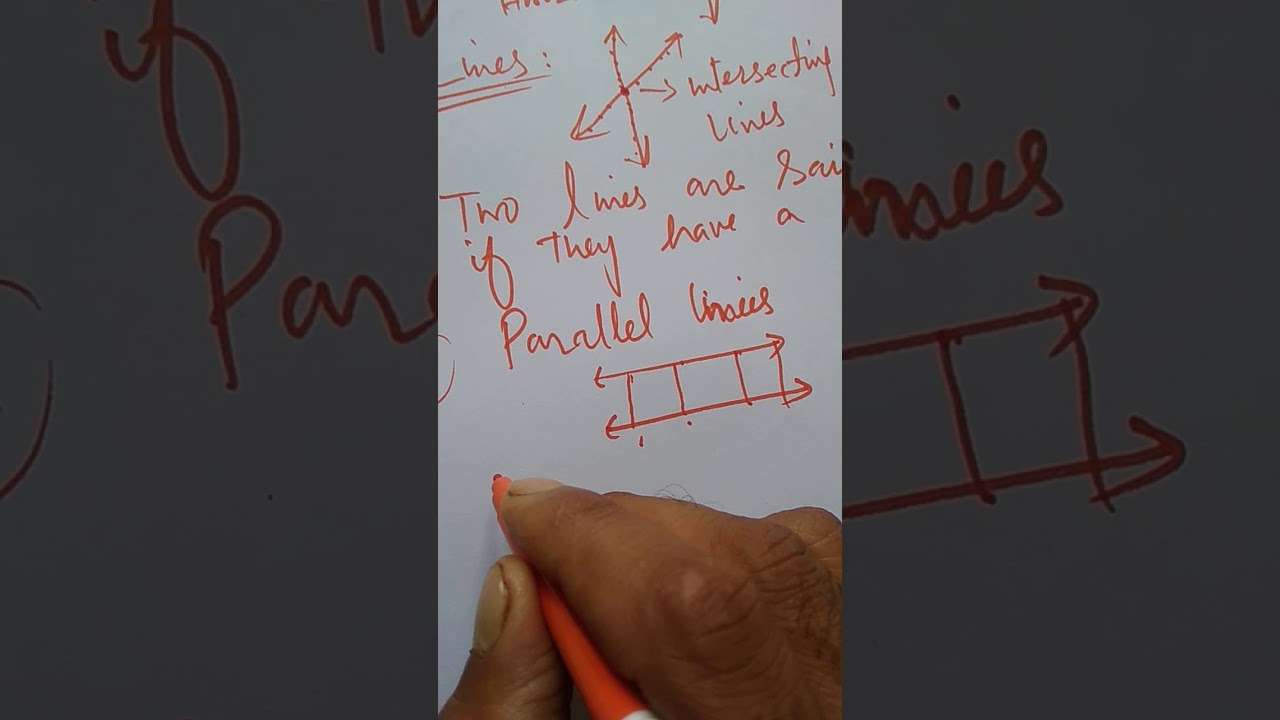 lines :
→ intersecting
lines
Two lines are sai
if they have a
Parallel lines